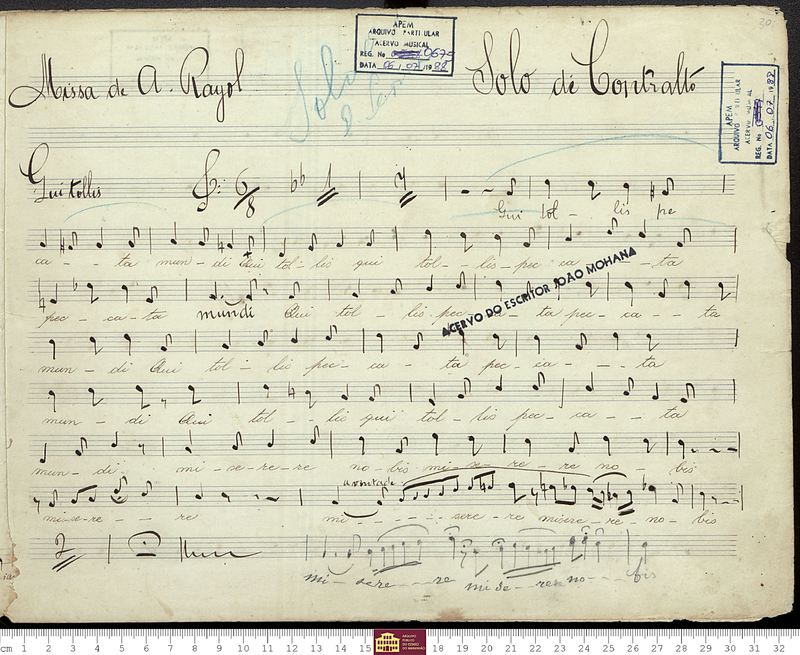 30
APEM
ARQUIVO PARTICULAR
ACERVO MUSICAL
REG. No 0675
DATA 06 / 07 / 1988
Missa de A. Rayol
Solo
Solo de Contralto
APEM
ARQUIVO PARTICULAR
ACERVO MUSICAL
REG. No
DATA 06 . 07 . 1988
Qui tollis
6/8
Qui tol - lis pe
ca - - ta mun - di Qui tol - lis qui tol - lis - pec ca - ta
ACERVO DO ESCRITOR JOÃO MOHANA
pec - ca - ta mundi Qui tol - lis pec - ca - ta pec - ca - - ta
mun - di Qui tol - lis pec - ca - ta pec - ca - - ta
mun - di Qui tol - lis qui tol - lis pec - ca - - ta
mun - di mi - se - re - re no - bis mi - se - re - re no - bis
a vontade
mi-se-re - - re mi - - - - - sere - re misere - re - no - bis
2
mi - sere - - re mi se - re no - - - bis
cm 1 2 3 4 5 6 7 8 9 10 11 12 13 14 15 18 19 20 21 22 23 24 25 26 27 28 29 30 31 32